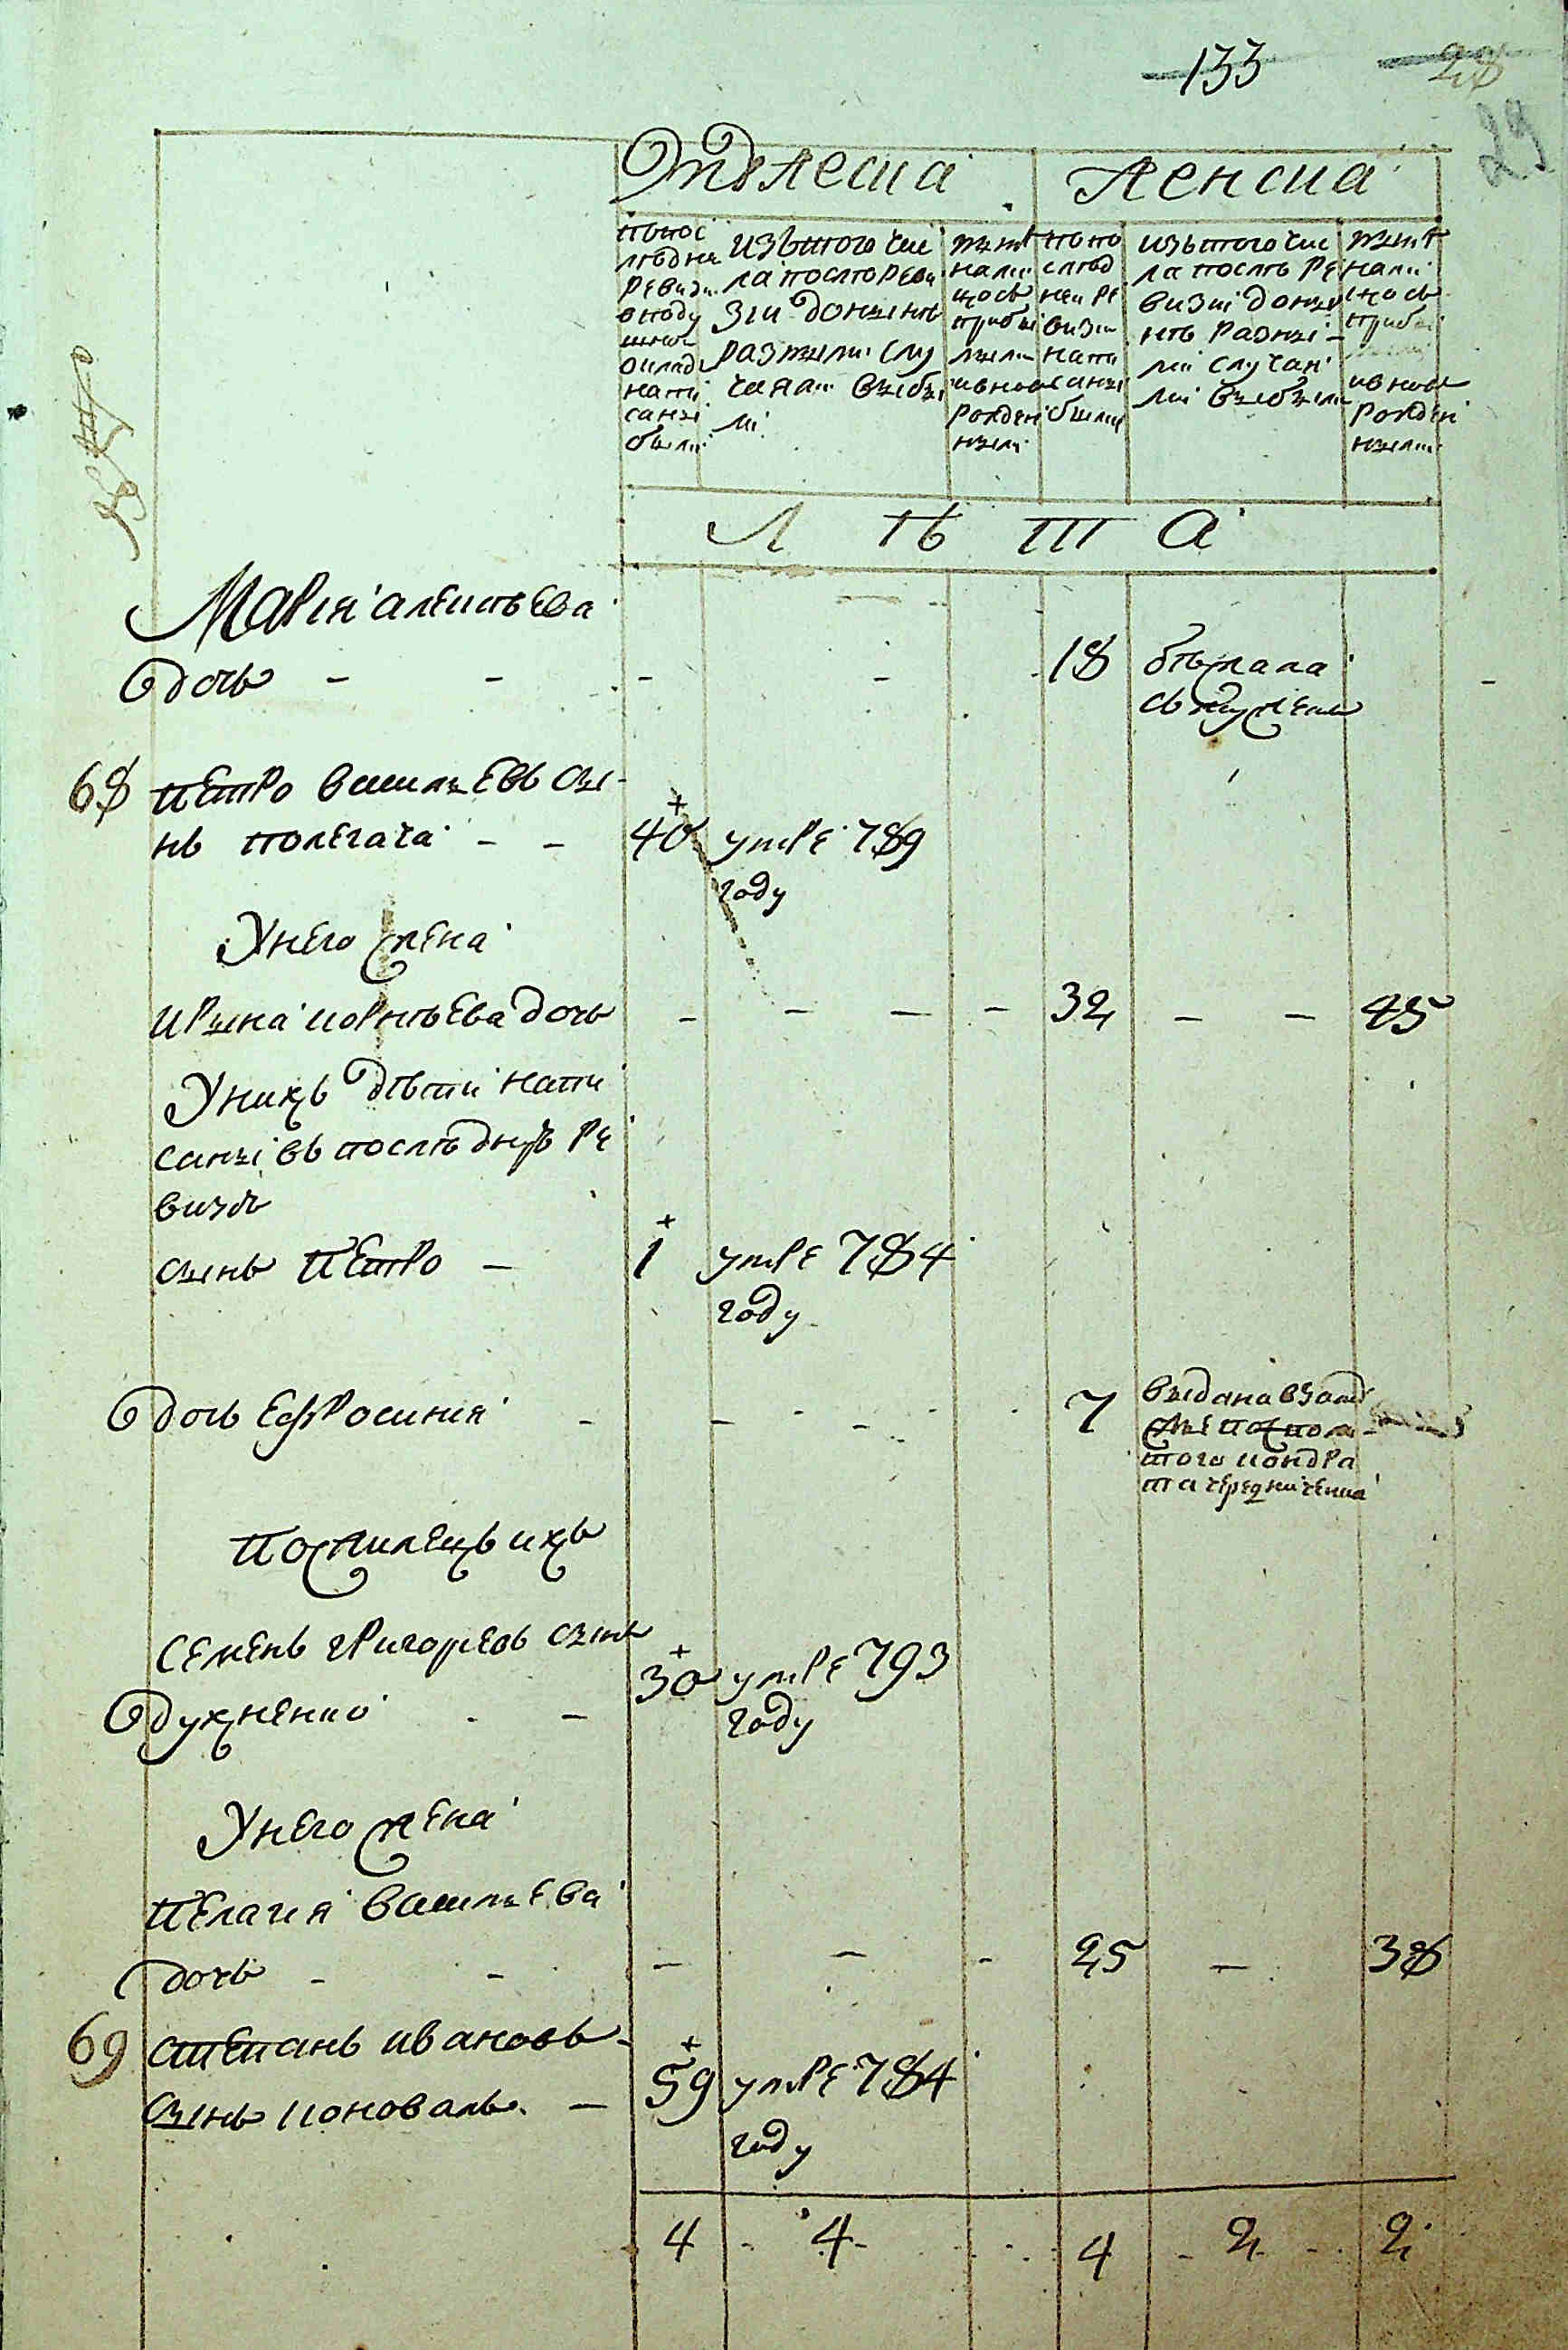 133 28
29
Мужеска Женска
по пос
лѣдне
ревизи
в поду
шной
окладъ
напи
саныі
были
изъ того чис
ла после реви
зіи до ныне
разными слу
чаями выбы
ли
ныне
на ли
цо съ
прибы
лыми
и внов
рожден
ными
по по
след
ней ре
визіи
напи
саныі
были
изъ того чис
ла послѣ ре
визіи до ны
нѣ разны
ми случаи
ми выбыли
ныне
на ли
цо съ
прибы
лыми
и вновь
рожден
ными
Л ѣ т а
Марія алексѣева
дочь - - - - 18 бѣжала
съ мужем
68 петро василиевъ сы-
нъ полегача - - 40 умре 789
году
У него жена
ирына корнѣева дочь - - - - 32 - - 45
У нихъ дѣти напи
саныі въ послѣднѣй ре
визіи
сынъ петро - 1 умре 784
году
дочь ефросинія - - - 7 выдана в заму
жье посполи
того кондра
та чередниченка
Пожилецъ ихъ
семенъ григоріевъ сынъ
духненко - - 30 умре 793
году
У него жена
пелагия василиева
дочь - - - - - 25 - 38
69 степанъ ивановъ
сынъ коновалъ - 59 умре 784
году
4 - 4 - 4 - 2 - 2